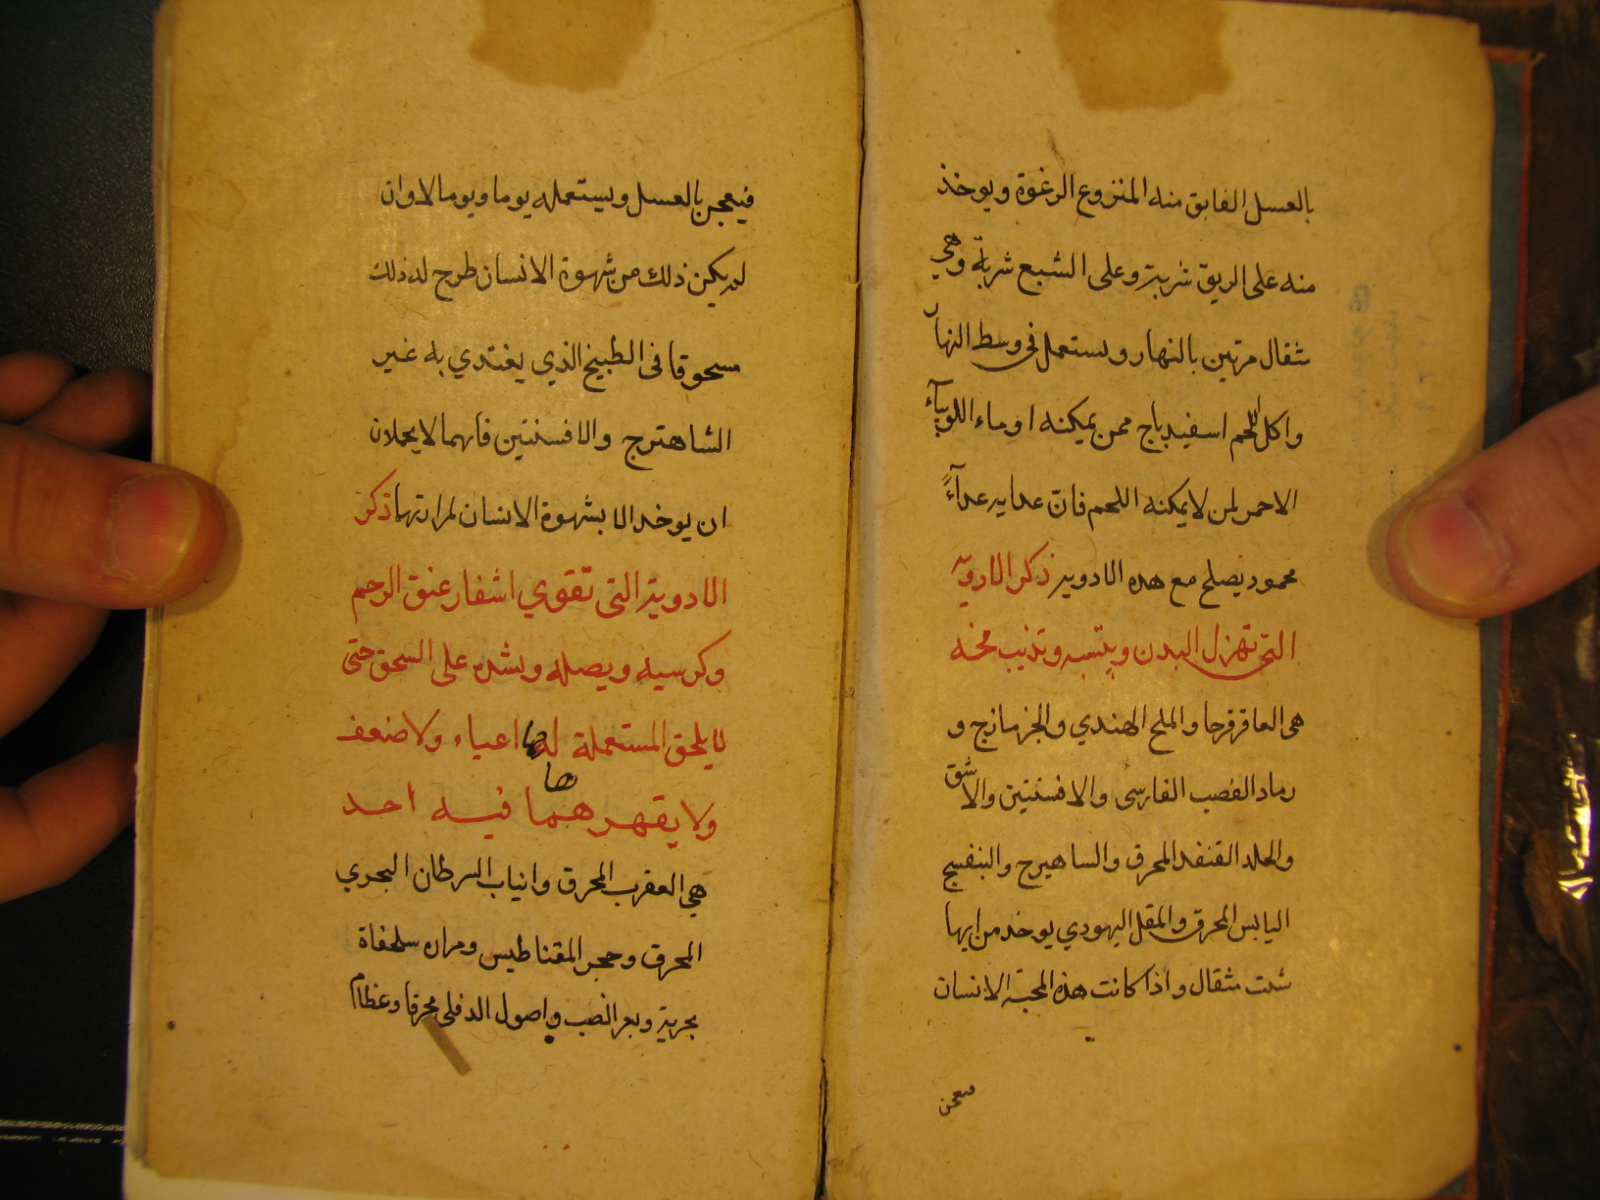 بالعسل الفايق منه المنزوع الرغوة ويوخذ
منه على الريق شربة وعلى الشبع شربة وهي
مثقال مرتين بالنهار ويستعمل في وسط النهار
واكل اللحم اسفيدباج ممن يمكنه او ماء اللوبيآء
الاحمر لمن لا يمكنه اللحم فان غدايه غدآءً
محمود يصلح مع هذه الادوية ذكر الادوية
التي تهزل البدن ويتسبه وتذيب مخه
هي العاقرقرحا والملح الهندي والجزمازج و
رماد القصب الفارسى والافسنتين والاشق
والجلد القنفد المحرق والساهيرج والبنفسج
اليابس المحرق والمقل اليهودي يوخد من ايها
شت مثقال واذا كانت هذه المحبة الانسان
فيعجن
فيعجن بالعسل ويستعمله يوما ويوما لا وان
لم يكن ذلك من شهوة الانسان طرح له ذلك
سحوقا في الطبيخ الذي يغتدي به غير
الشاهترج والافسنتين فانهما لا يجلان
ان يوخد الا بشهوة الانسان لمرارتها ذكر
الادوية التي تقوي اشفار عنق الرحم
وكرسيه ويصله ويشده على السحق حتى
لا يلحق المستعملة لها اعياء ولا ضعف
ها
ولا يقهرهما فيه احد
هي العقرب المحرق وانياب السرطان البحري
المحرق وحجر المقناطيس ومراره سلحفاة
بحرية وبعر الضب واصول الدفلى محرقا وعظام